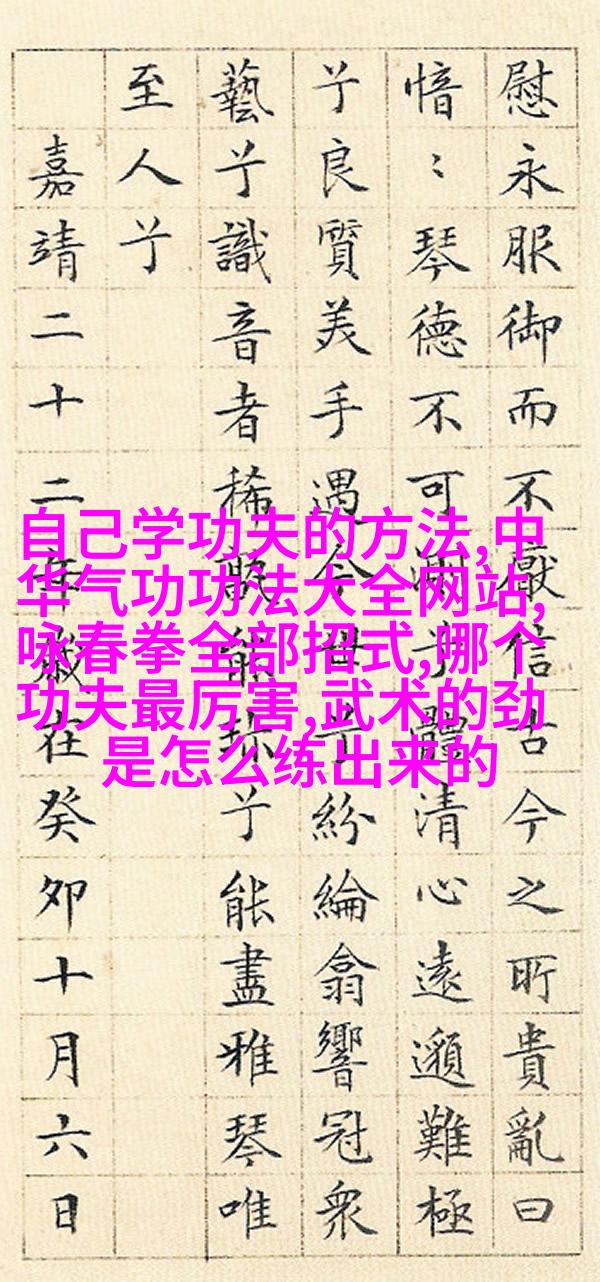 慰永服御而不厭信古今之所貴亂曰
愔〻琴德不可測兮體清心遠邈難極
兮良質美手遇今世兮紛綸翕響冠衆
藝兮識音者稀孰能珍兮能盡雅琴唯
至人兮
嘉靖二十二年歲在癸卯十月六日
自己学功夫的方法,中
华气功功法大全网站,
咏春拳全部招式,哪个
功夫最厉害,武术的劲
是怎么练出来的